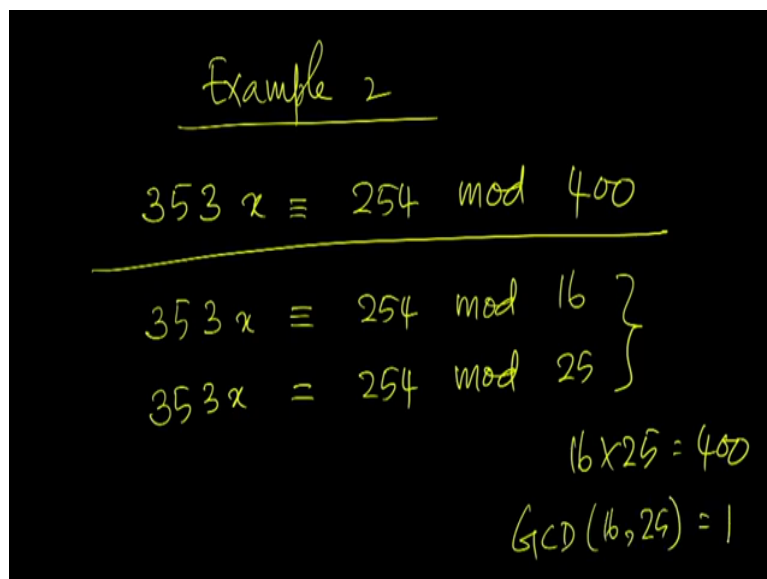 Example 2
353 x ≡ 254 mod 400
353 x ≡ 254 mod 16 }
353x = 254 mod 25
16 X 25 = 400
GCD (16, 25) = 1